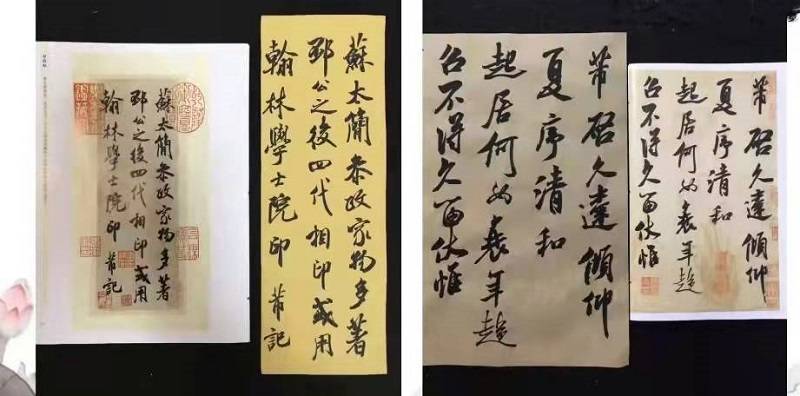 蘇太簡參政家物多著
邳公之後四代相印或用
翰林學士院印 芾記
蘇太簡參政家物多著
邳公之後四代相印或用
翰林學士院印 芾記
芾啓久違傾仰
夏序清和
起居何如衰年趨
召不得久留伏惟
芾啓久違傾仰
夏序清和
起居何如衰年趨
召不得久留伏惟